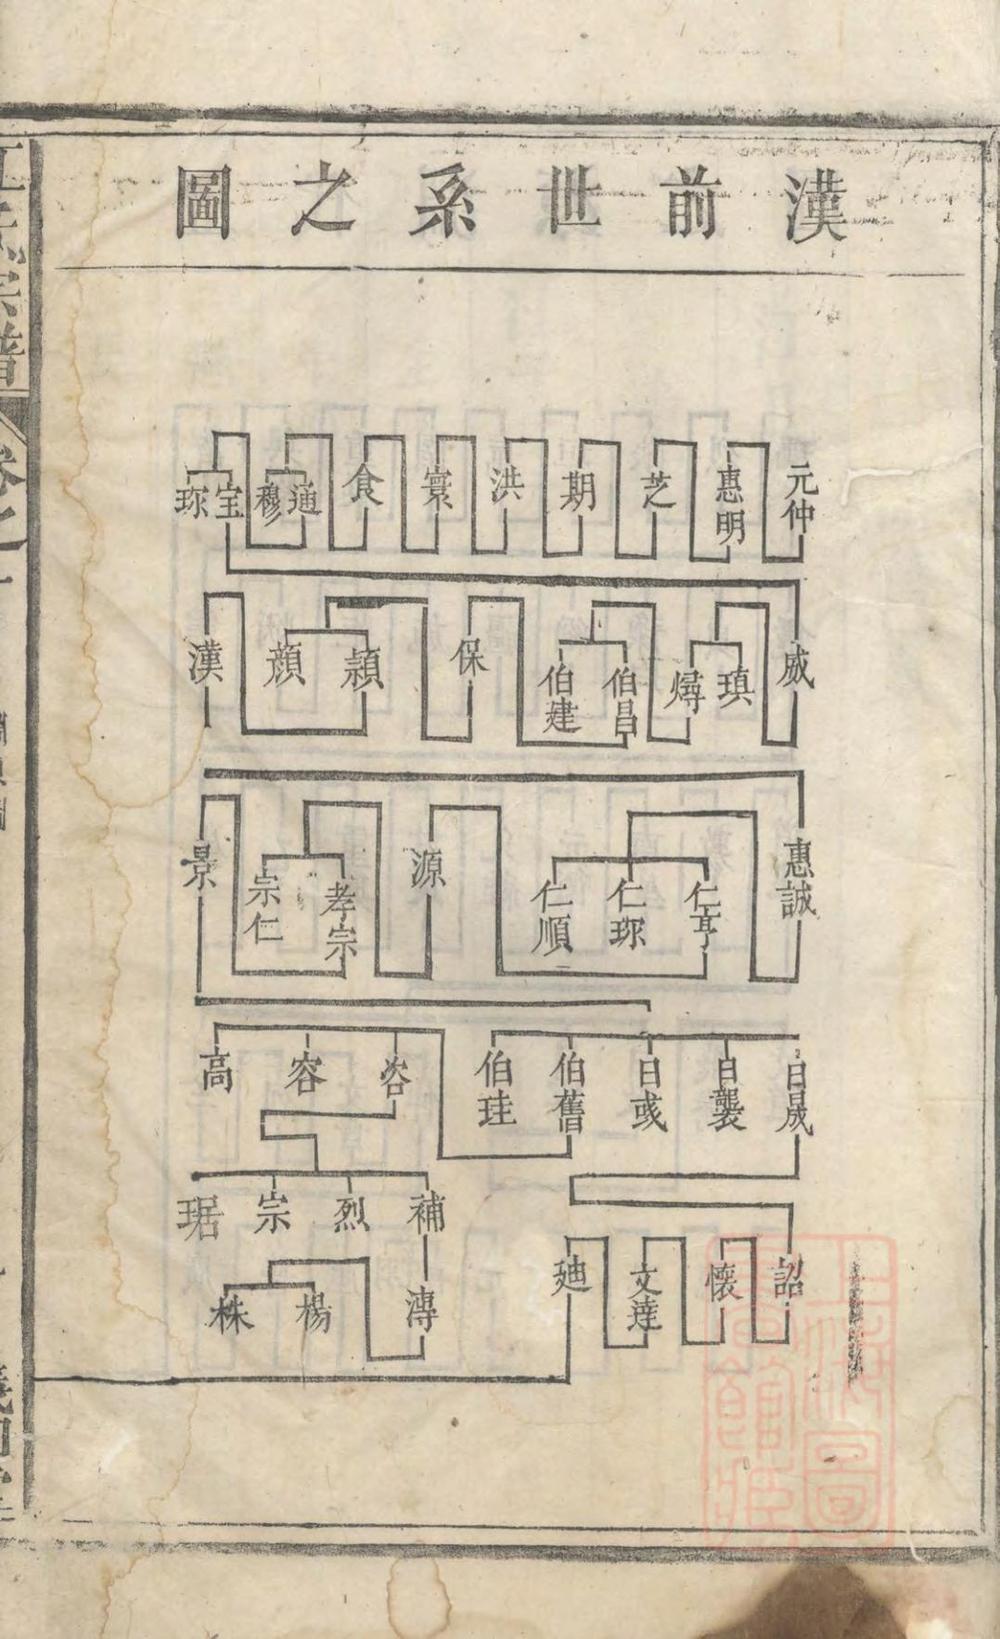 漢前世系之圖
元仲 惠明 芝 期 洪 寰 食 通 穆 宝 珎
威 瑱 燖 伯昌 伯建 保 頴 顔 漢
惠誠 仁亨 仁珎 仁順 源 孝宗 宗仁 景
日晟 日襲 日彧 伯舊 伯珪 容 高
補 烈 宗 琚
詔 懷 文達 廸 漙 楊 株